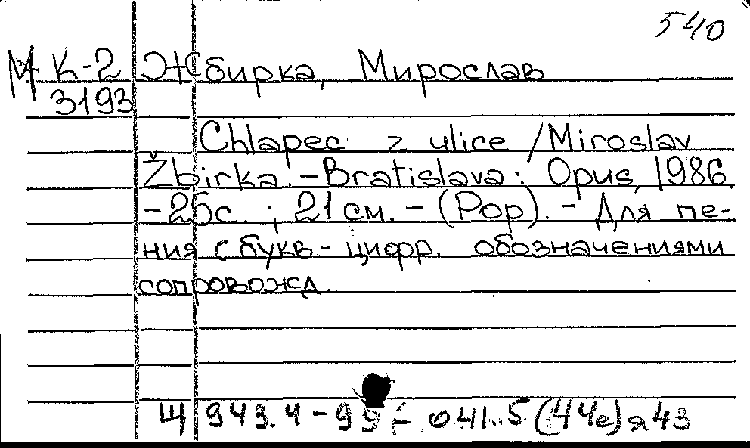 540
М К-2 Жбирка, Мирослав
3193
Chlapec z ulice / Miroslav
Žbirka. - Bratislava: Opus, 1986.
- 25с. ; 21 см. - (Pop). - Для пе-
ния с букв-цифр. обозначениями
сопровожд.
Щ 943.4 - 99 - 041..5 (44е) я43